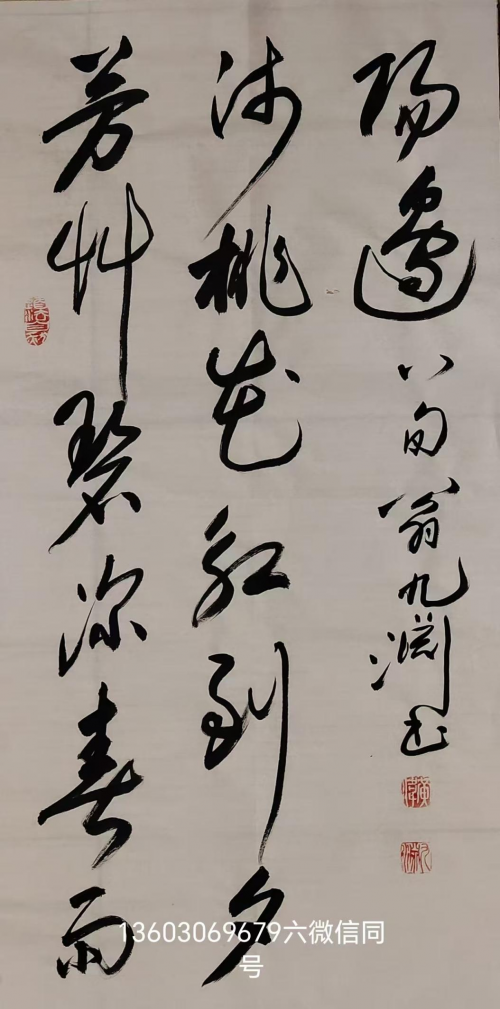 芳草碧深春雨
沛桃花紅到夕
陽邊
八旬翁九淵书
13603069679六微信同
号